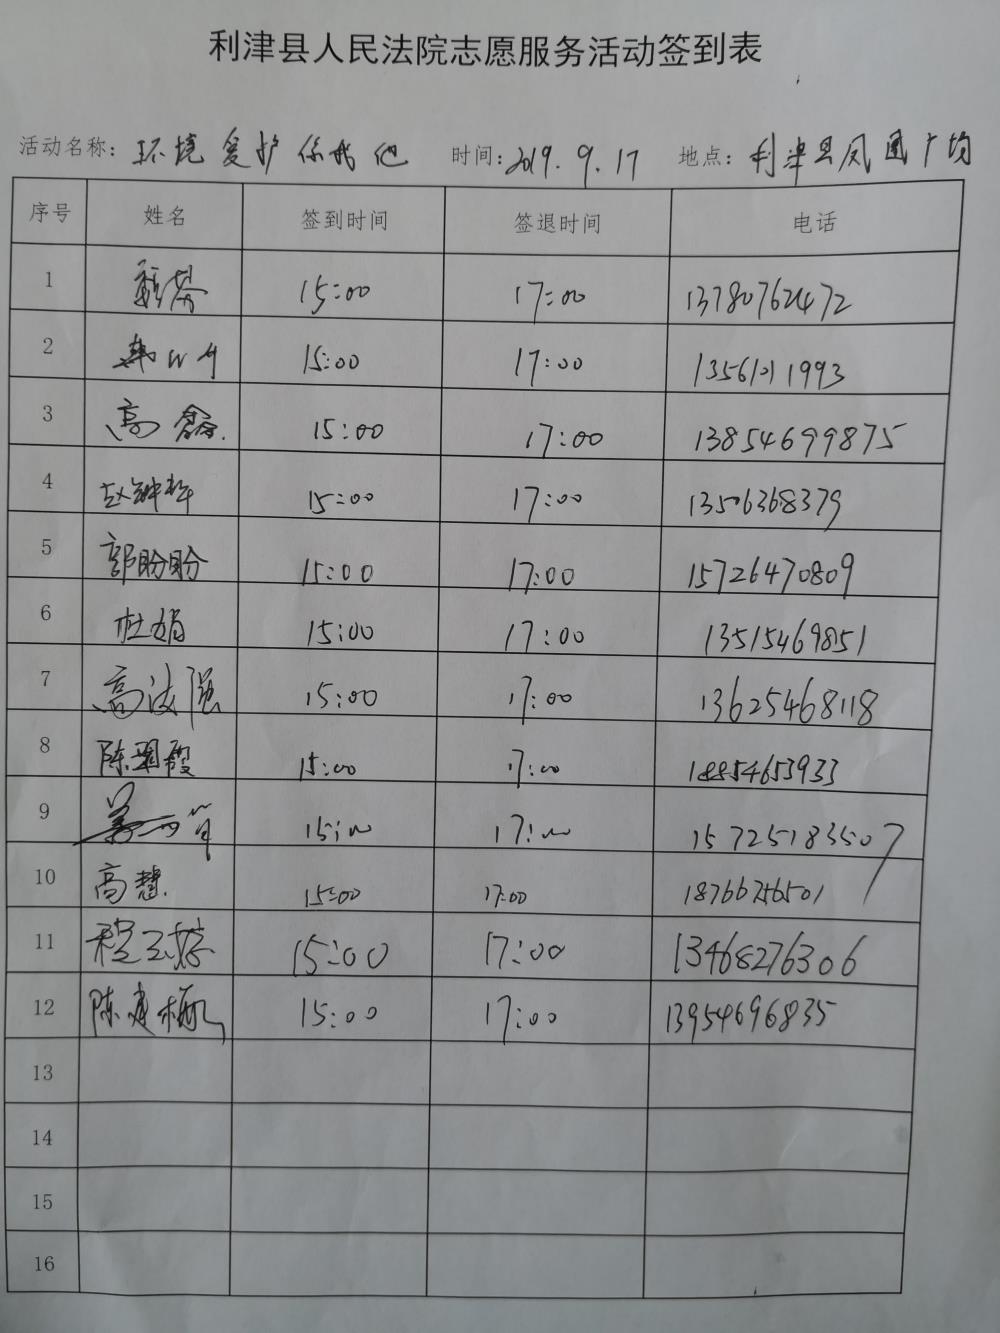 利津县人民法院志愿服务活动签到表
活动名称: 环境爱护你我他 时间: 2019.9.17 地点: 利津县凤凰广场
序号 姓名 签到时间 签退时间 电话
1 15:00 17:00 13780762472
2 15:00 17:00 13561211993
3 高鑫 15:00 17:00 13854699875
4 赵钟 15:00 17:00 13506368379
5 郭盼盼 15:00 17:00 15726470809
6 杜娟 15:00 17:00 13515469851
7 高波强 15:00 17:00 13625468118
8 陈霞 15:00 17:00 18854653933
9 15:00 17:00 15725183507
10 高慧 15:00 17:00 18766756501
11 程玉婷 15:00 17:00 13468276306
12 陈建梅 15:00 17:00 13954696835
13
14
15
16